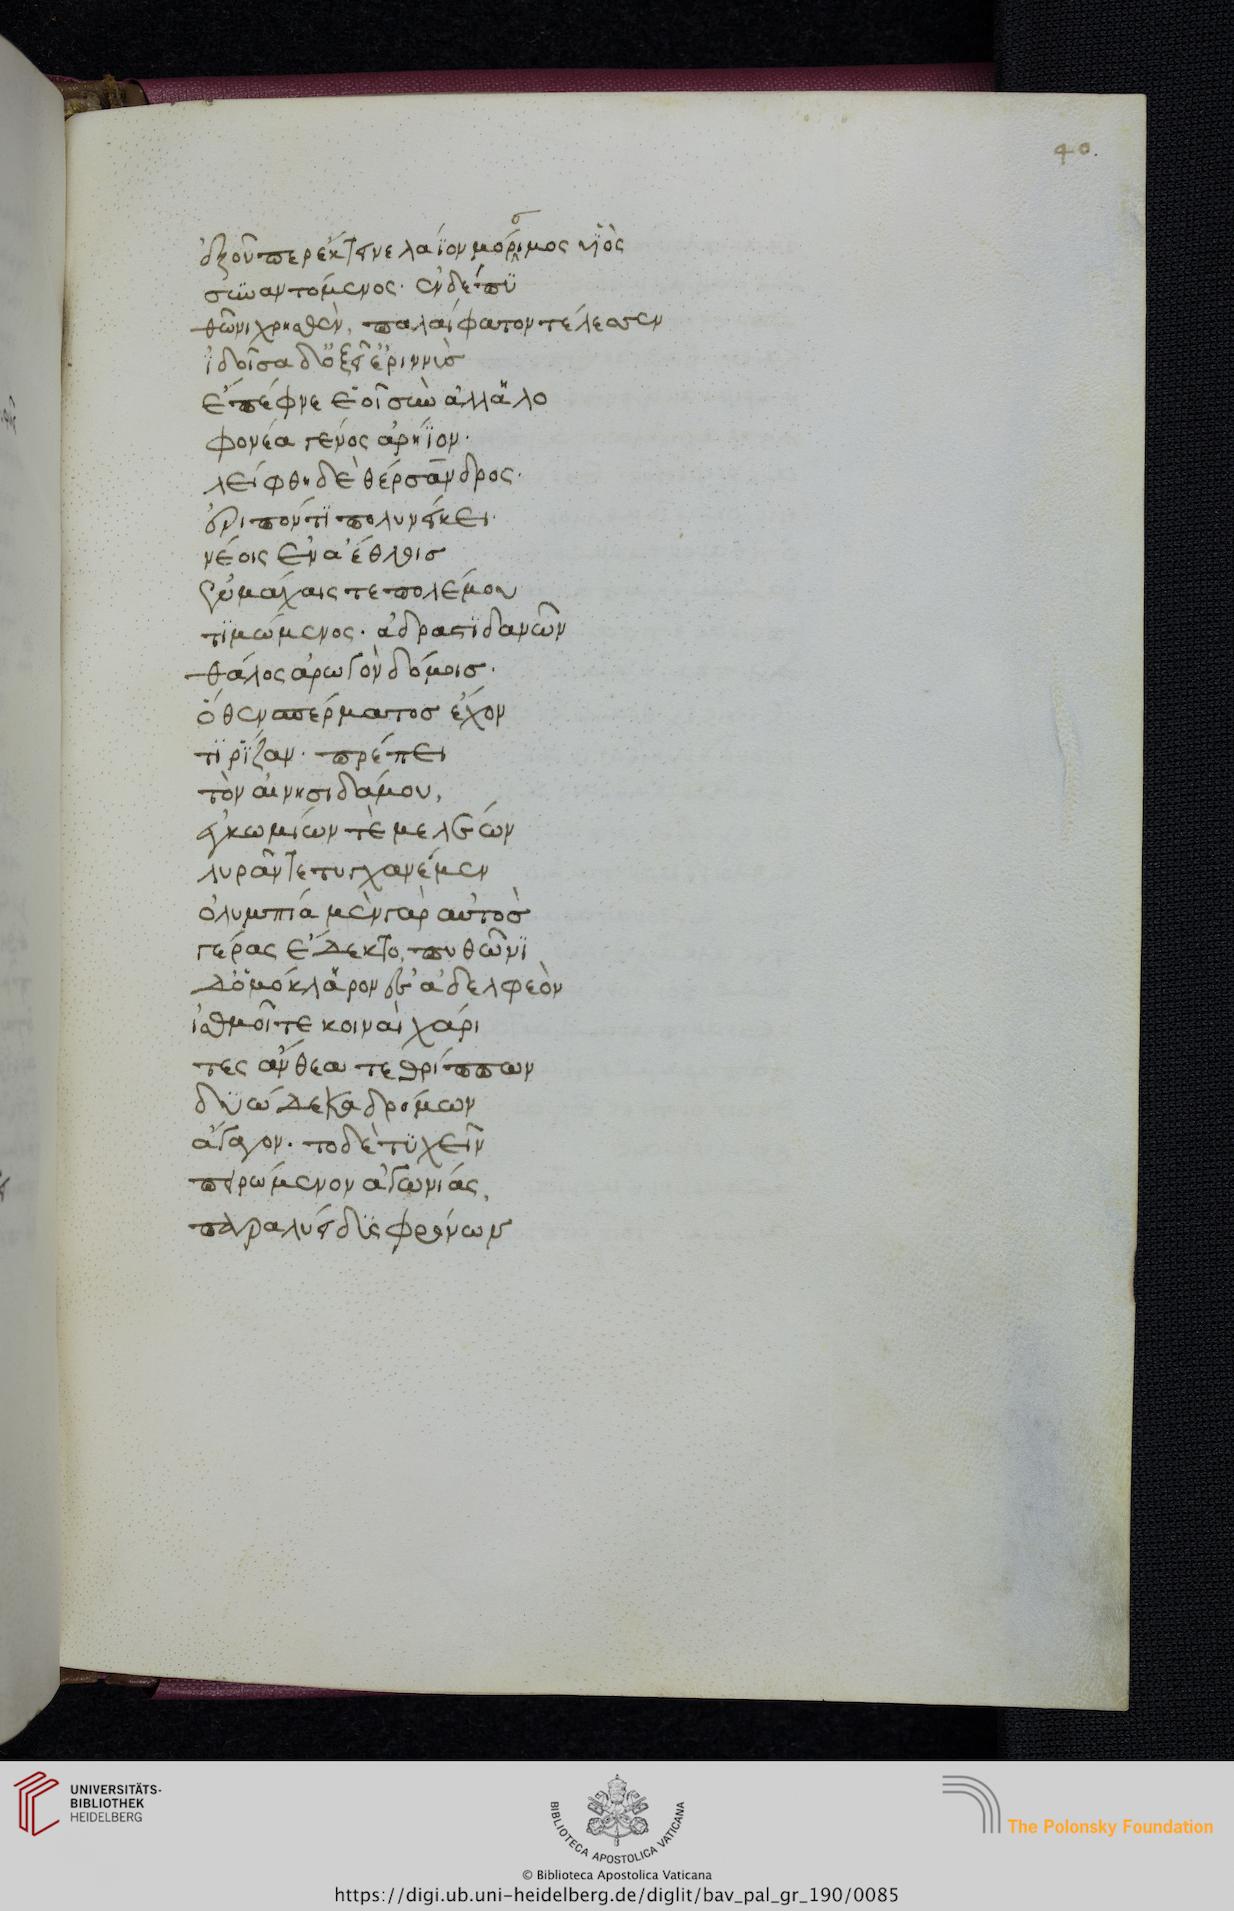 40.
ἐξ οὗπερ ἔκτεινε λάϊον μόριμος ὑϊὸς
σ
συναντόμενος· ἐν δὲ πυ
θῶνι χρησθὲν, παλαίφατον τέλεσσεν
ἰδοῖσα δ' ὀξεῖ' ἐρινnὺσ
ἔπεφνε ἑοῖ σὺν ἀλλαλο
φονία γένος ἀρήϊον·
λείφθη δὲ θέρσανδρος·
ἐριπόντι πολυνείκει·
νέοις ἐν ἀέθλοισ
ἐν μάχαις τε πολέμου
τιμώμενος· ἀδραστιδανῶν
θάλος ἀρωγὸν δόμοισ·
ὅθεν σπέρματοσ ἔχον
τι ῥίζαν· πρέπει
τὸν αἰνησιδάμου,
ἐγκωμίων τὲ μελέων
λυρᾶν τε τυγχανέμεν
ὀλυμπία μὲν γὰρ αὐτὸσ
γέρας ἔδεκτο, πυθῶνι
δ' ὁμόκλαρον ἐς ἀδελφεὸν
ἰσθμοῖ τε κοιναὶ χάρι
τες ἄνθεα τεθρίππων
δυώδεκα δρόμων
ἄγαγον· τὸ δὲ τυχεῖν
πειρώμενον ἀγωνίας,
παραλύει δυσφρόνων
UNIVERSITÄTS-
BIBLIOTHEK
HEIDELBERG
BIBLIOTECA APOSTOLICA VATICANA
The Polonsky Foundation
© Biblioteca Apostolica Vaticana
https://digi.ub.uni-heidelberg.de/diglit/bav_pal_gr_190/0085